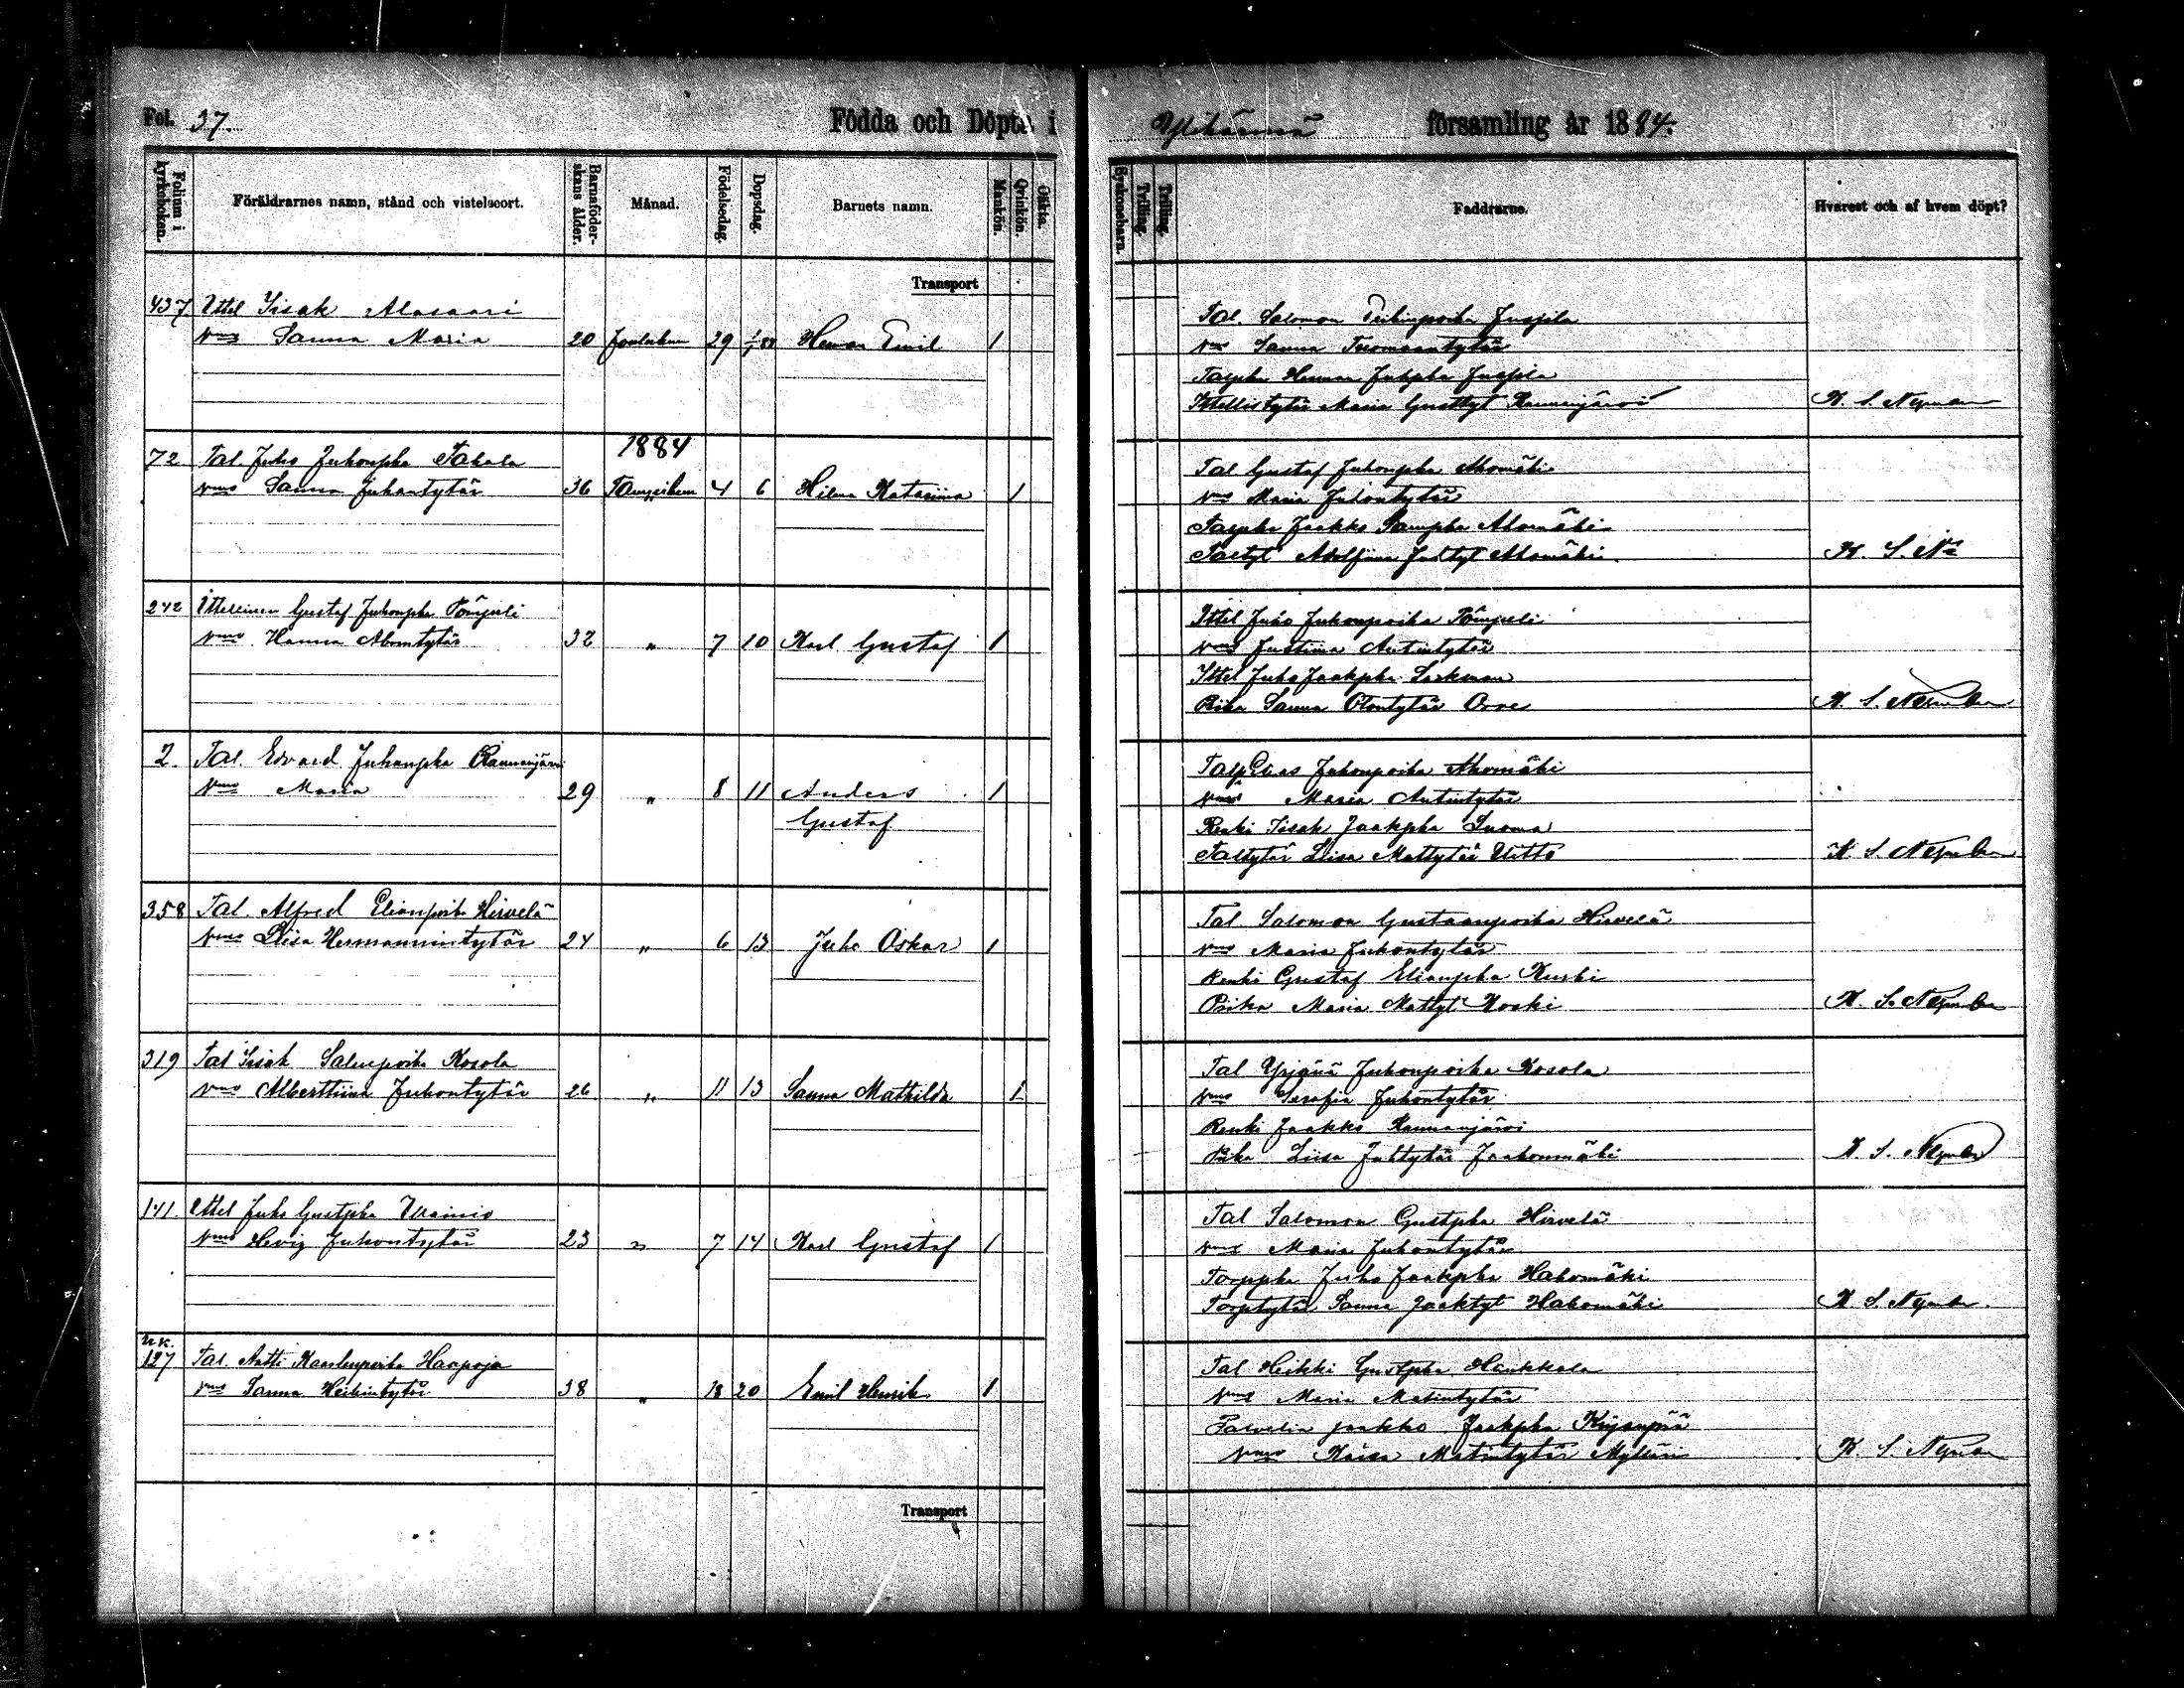 Fol. 37. Födda och Döpta i Ylihärmä församling år 1884.
Folium i kyrkoboken.
Föräldrarnes namn, stånd och vistelseort.
Barnaföderskans ålder.
Månad.
Födelsedag.
Dopsdag.
Barnets namn.
Mankön.
Qvinkön.
Oäkta.
Syskonebarn.
Tvilling.
Trilling.
Faddrarne.
Hvarest och af hvem döpt?
Transport
437 Ittel Iisak Alasaari
vmo Sanna Maria 20 Joulukuu 29 Herman Emil 1
Tal. Salomon Juspila
vmo Sanna Tuomaantytär
Herman Juspila
Maria Rannanjärvi K. S. Nyman
1884
72 Tal. Juho Juhonpka Takala
vmo Sanna Juhontytär 36 Tammikuu 4 6 Hilma Katariina 1
Tal Gustaf Juhonpka Ahomäki
vmo Maria Juhontytär
Jaakko Ahomäki
Adolfina Ahomäki K. S. Nn
242 Ittellinen Gustaf Juhonpka
vmo Hanna 32 " 7 10 Karl Gustaf 1
Ittel Juho Juhonpoika
vmo Justiina Antintytär
Ittel Juho Jaakpka
Piika Sanna K. S. Nyman
2. Tal. Edvard Juhonpka Rannanjärvi
vmo Maria 29 " 8 11 Anders Gustaf 1
Elias Juhonpoika Ahomäki
vmo Maria Antintytär
Renki Iisak Jaakpka Luoma
Taltytär Liisa Mattytär K. S. Nyman
358 Tal. Alfred Elianpoika Hirvelä
vmo Liisa Hermannintytär 24 " 6 13 Juho Oskar 1
Tal. Salomon Gustaanpoika Hirvelä
vmo Maria Juhontytär
Renki Gustaf Elianpka
Piika Maria Mattyt Koski K. S. Nyman
319 Tal Iisak Salunpoika Kosola
vmo Alberttiina Juhontytär 26 " 11 13 Sanna Mathilda 1
Tal Yrjänä Juhonpoika Kosola
vmo Serafia Juhontytär
Renki Jaakko Rannanjärvi
Piika Liisa Juhtytär Jaakonmäki K. S. Nyman
141. Ittel Juho Gustpka Wainio
vmo Hevig Juhontytär 23 " 7 14 Karl Gustaf 1
Tal Salomon Gustpka Hirvelä
vmo Maria Juhontytär
Torppka Juho Jaakpka Hakomäki
Torptytär Sanna Jaaktyt Hakomäki K. S. Nyman.
uk.
127 Tal. Antti Kaarlenpoika Haapoja
vmo Sanna Heikintytär 38 " 18 20 Emil Henrik 1
Tal Heikki Gustpka Haukkala
vmo Maria Matintytär
Jaakko Jaakpka
vmo Kaisa Matintytär K. S. Nyman
Transport